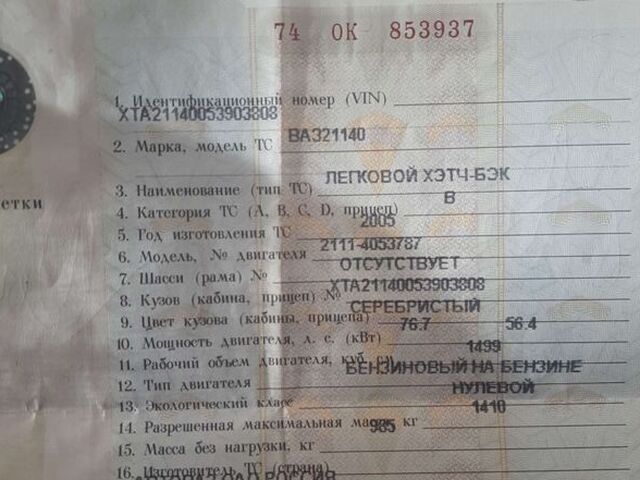 74 ОК 853937
1. Идентификационный номер (VIN)
ХТА21140053903808
2. Марка, модель ТС ВАЗ21140
ЛЕГКОВОЙ ХЭТЧ-БЭК
3. Наименование (тип ТС)
В
4. Категория ТС (А, В, С, D, прицеп)
2005
5. Год изготовления ТС
2111-4053787
6. Модель, № двигателя
ОТСУТСТВУЕТ
7. Шасси (рама) №
ХТА21140053903808
8. Кузов (кабина, прицеп) №
СЕРЕБРИСТЫЙ
9. Цвет кузова (кабины, прицепа)
76.7 56.4
10. Мощность двигателя, л. с. (кВт)
1499
11. Рабочий объем двигателя, куб. см
БЕНЗИНОВЫЙ НА БЕНЗИНЕ
12. Тип двигателя
НУЛЕВОЙ
13. Экологический класс
1410
14. Разрешенная максимальная масса, кг
985
15. Масса без нагрузки, кг
16. Изготовитель ТС (страна)
АВТОВАЗ ОАО РОССИЯ
етки